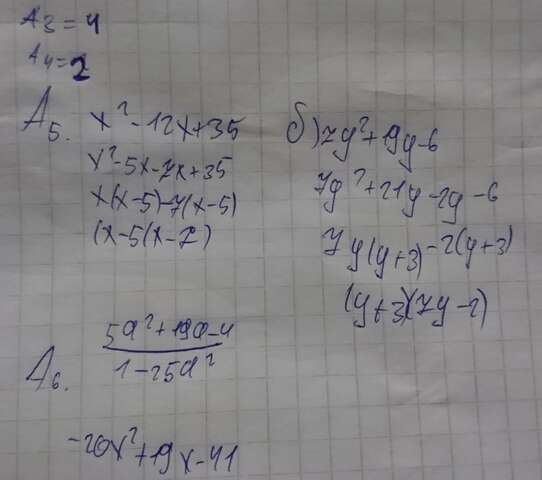 A3 = 4
A4 = 2
A5. x² - 12x + 35
x² - 5x - 7x + 35
x(x - 5) - 7(x - 5)
(x - 5(x - 7)
б) 7y² + 19y - 6
7y² + 21y - 2y - 6
7y(y + 3) - 2(y + 3)
(y + 3)(7y - 2)
A6. 5a² + 19a - 4
1 - 25a²
-20x² + 19x - 41